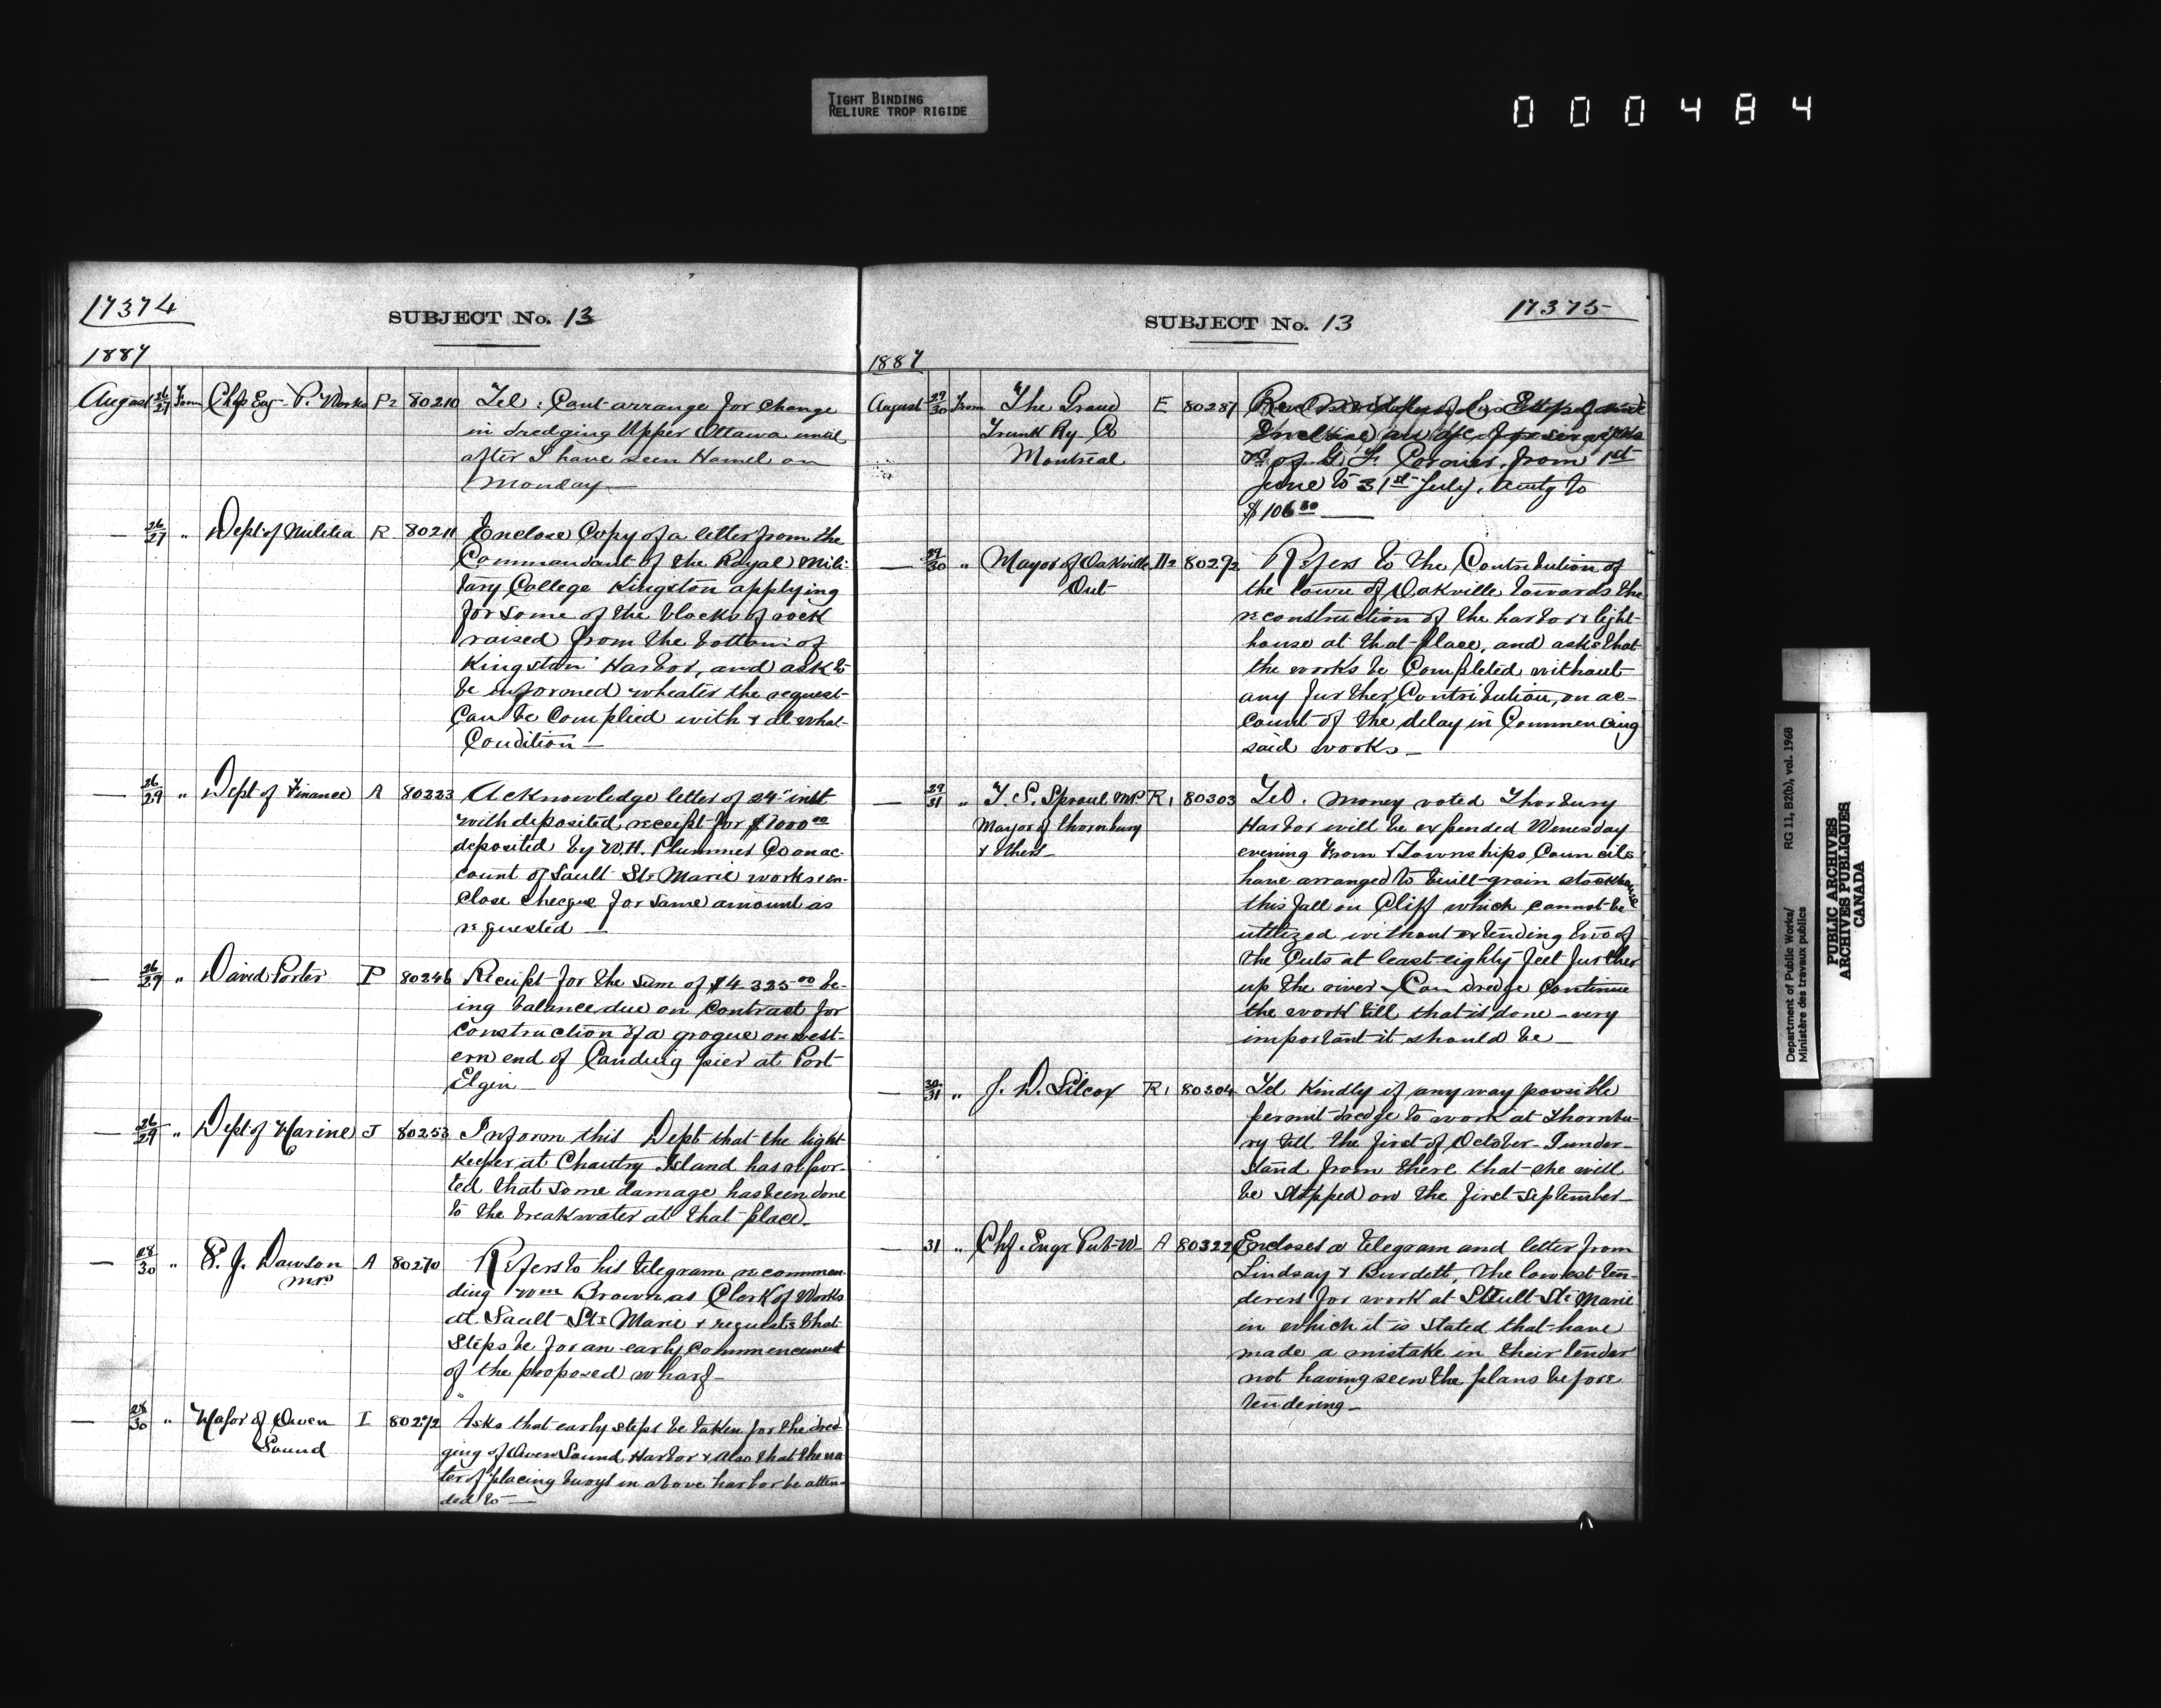 TIGHT BINDING
RELIURE TROP RIGIDE
000484
17374
SUBJECT No. 13
1887
August 26/27 From Chf Eng. P. Works P2 80210 Tel: Cant arrange for change
in dredging Upper Ottawa until
after I have seen Hamel on
Monday —
— 26/27 " Dept of Militia R 80211 Enclose Copy of a letter from the
Commandant of the Royal Mili-
tary College Kingston applying
for some of the blocks of rock
raised from the bottom of
Kingston Harbor, and ask to
be informed wheater the request
can be complied with & at what
Condition —
— 26/29 " Dept of Finance A 80223 Acknowledge letter of 24" inst
with deposited receipt for $7000 00
deposited by W.H. Plummer Co on ac-
count of Sault Ste Marie works & en-
close cheque for same amount as
requested —
— 26/29 " David Porter P 80246 Receipt for the sum of $4 325 00 be-
ing balance due on contract for
construction of a grogue on west-
ern end of Landing pier at Port
Elgin —
— 26/29 " Dept of Marine J 80253 Inform this Dept that the light
keeper at Chantry Island has repor-
ted that some damage has been done
to the breakwater at that place.
— 28/30 " P. J. Dawson A 80270 Refers to his telegram recommen-
MP
ding Wm Brown as Clerk of Works
at Sault Ste Marie & requests that
Steps be for an early commencement
of the proposed wharf —
— 28/30 " Mayor of Owen I 80272 Asks that early steps be taken for the dred-
Sound
ging of Owen Sound Harbor & also that the ma-
ter of placing buoys in above harbor be atten-
ded to —
17375
SUBJECT No. 13
1887
August 29/30 From The Grand E 80287
Trunk Ry. Co
Montreal of G. F. from 1st
June to 31st July, amtg to
$106
— 29/30 " Mayor of Oakville 80292 Refers to the Contribution of
Ont
the town of Oakville towards the
reconstruction of the harbor & light-
house at that place, and asks that
the works be completed without
any further Contribution, on ac-
count of the delay in Commencing
said works —
— 29/31 " T. S. Sproul MP R1 80303 Tel. Money voted Thorbury
Mayor of Thornbury Harbor will be expended Wenesday
& others — evening From & Townships Councils
have arranged to built grain stockhouse
this fall on Cliff which cannot be
utilized without extending two of
the Cuts at least eighty feet further
up the river — Can dredge continue
the work till that is done — very
important it should be —
— 30/31 " J. D. Silcox R1 80304 Tel Kindly if any way possible
permit dredge to work at Thornbu-
ry till the first of October — I under-
stand from there that she will
be stopped on the first September —
— 31 " Chf. Engr Pub W. A 80322 Encloses a telegram and letter from
Lindsay & Burdett, the lowest ten-
derers for work at Sault Ste Marie
in which it is stated that have
made a mistake in their tender
not having seen the plans before
tendering —
Department of Public Works/ RG 11, B2(b), vol. 1968
Ministère des travaux publics
PUBLIC ARCHIVES
ARCHIVES PUBLIQUES
CANADA